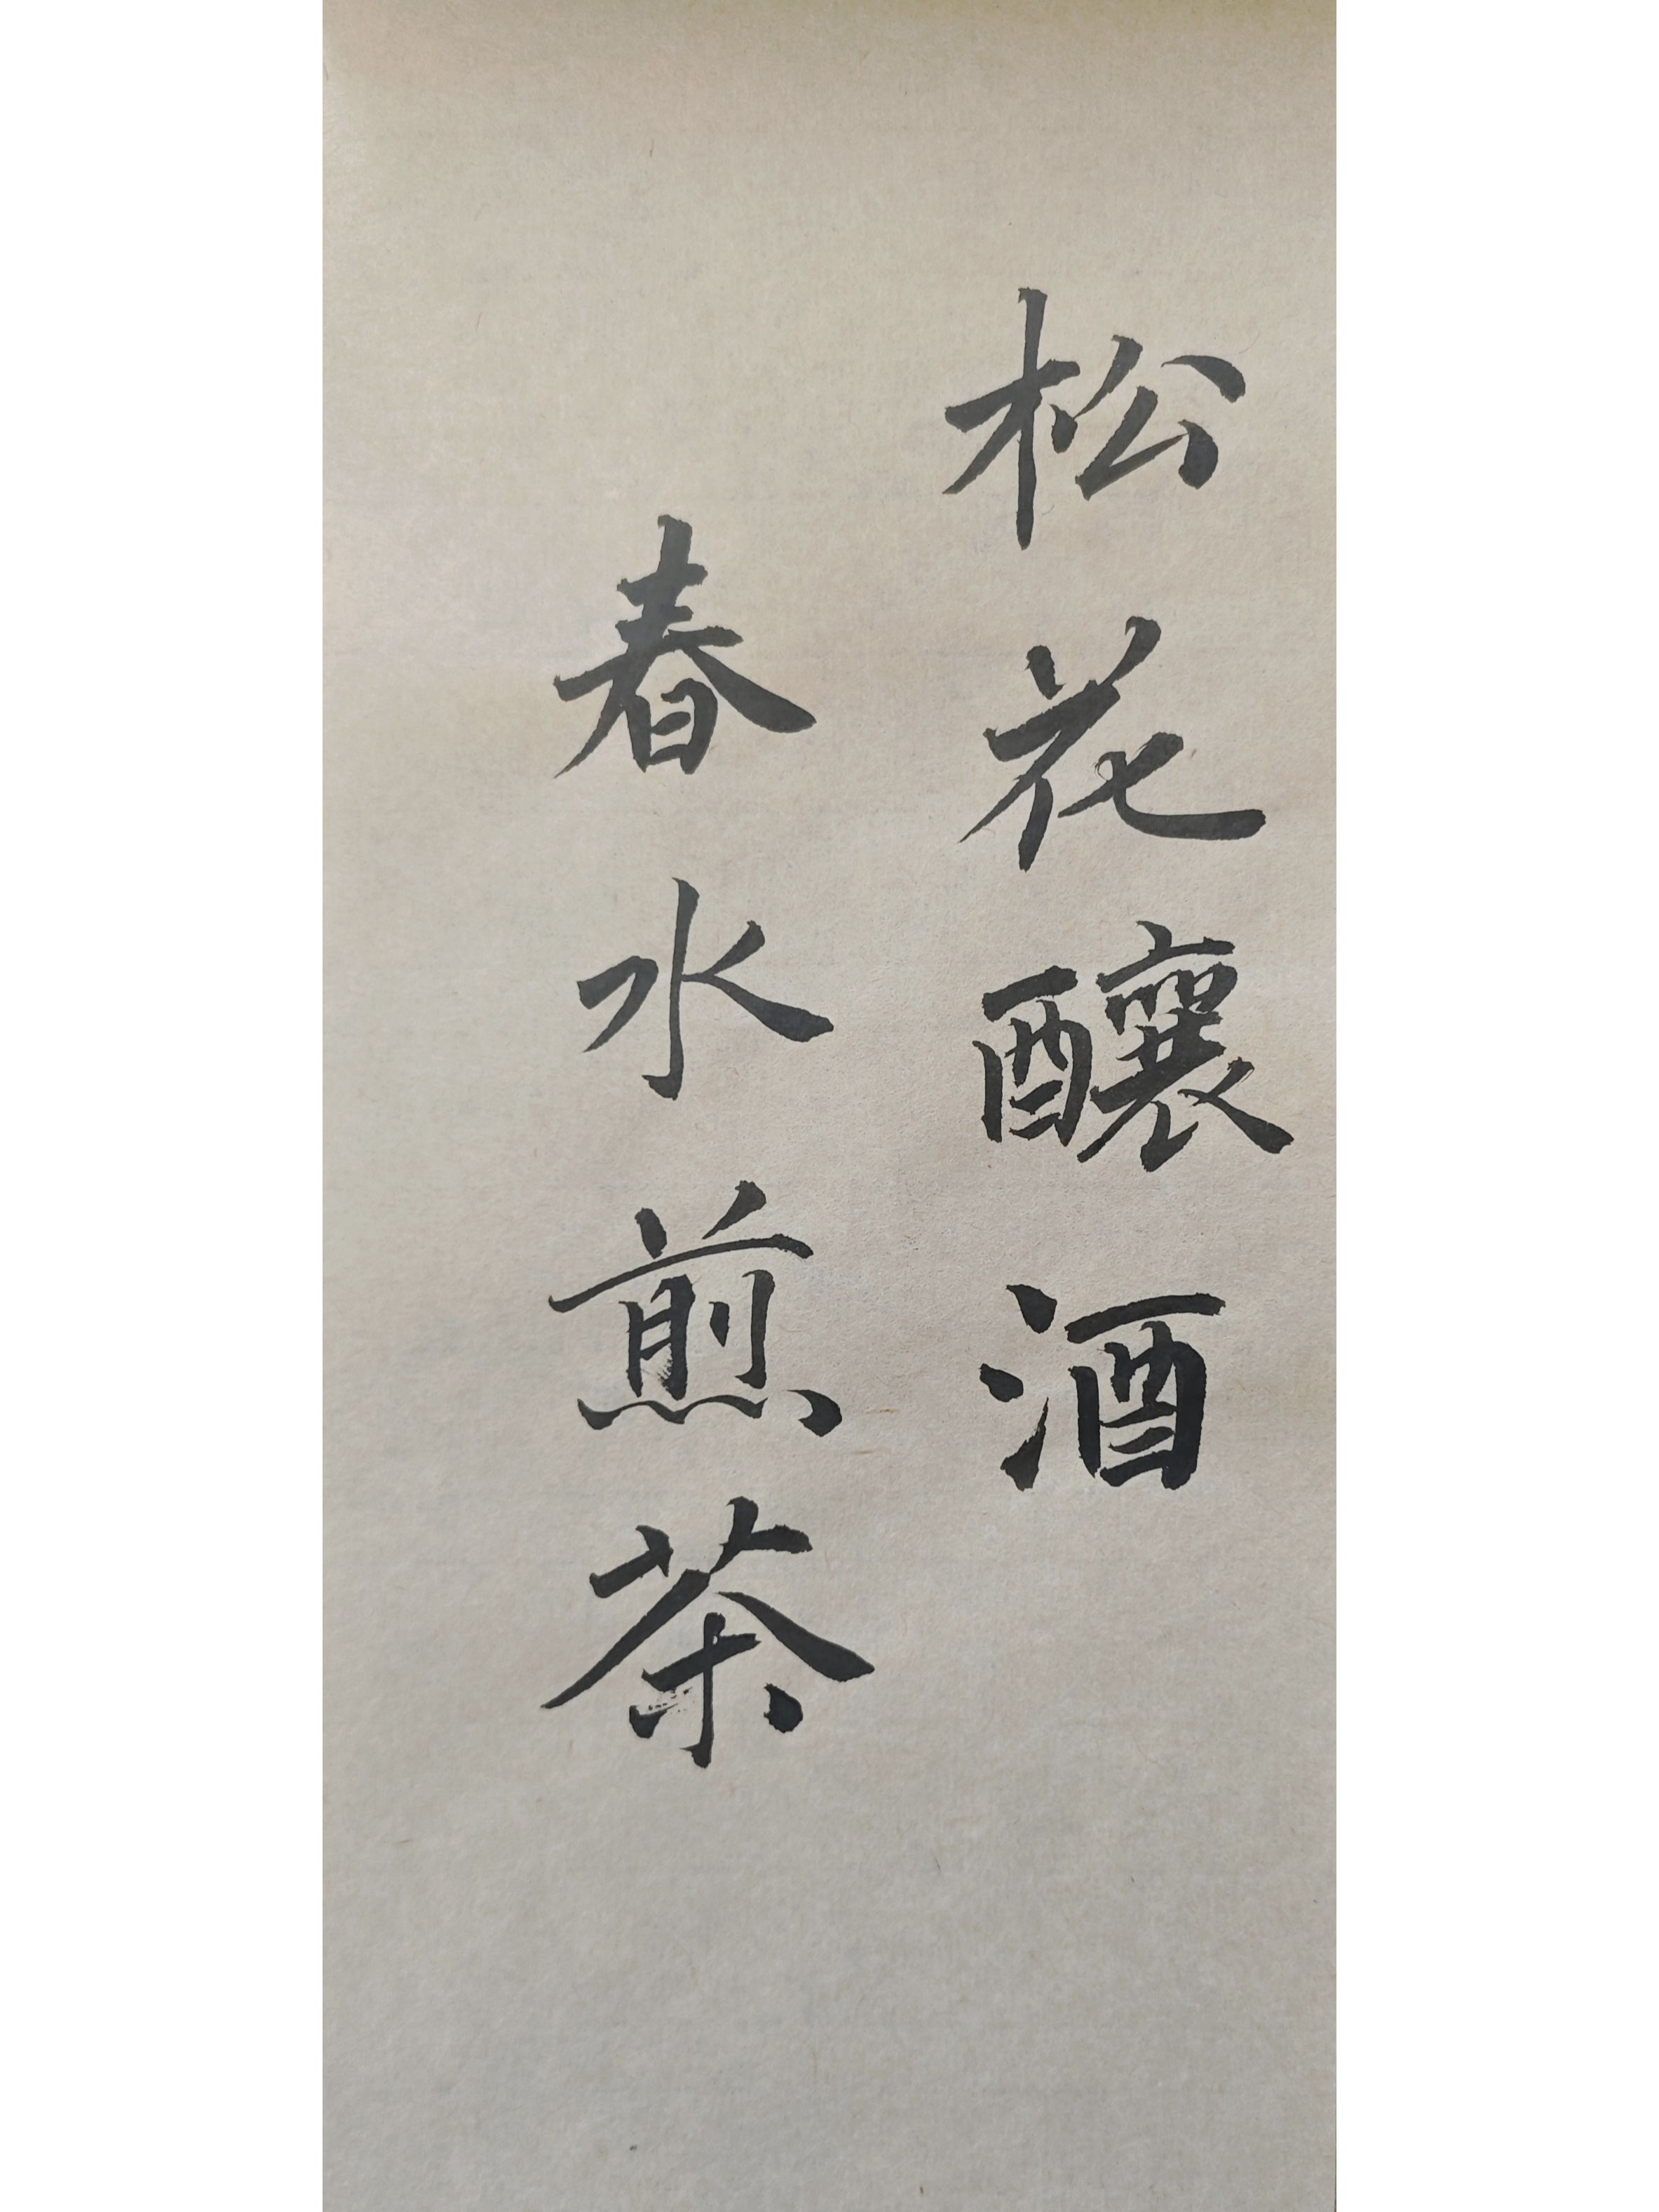 松花釀酒
春水煎茶